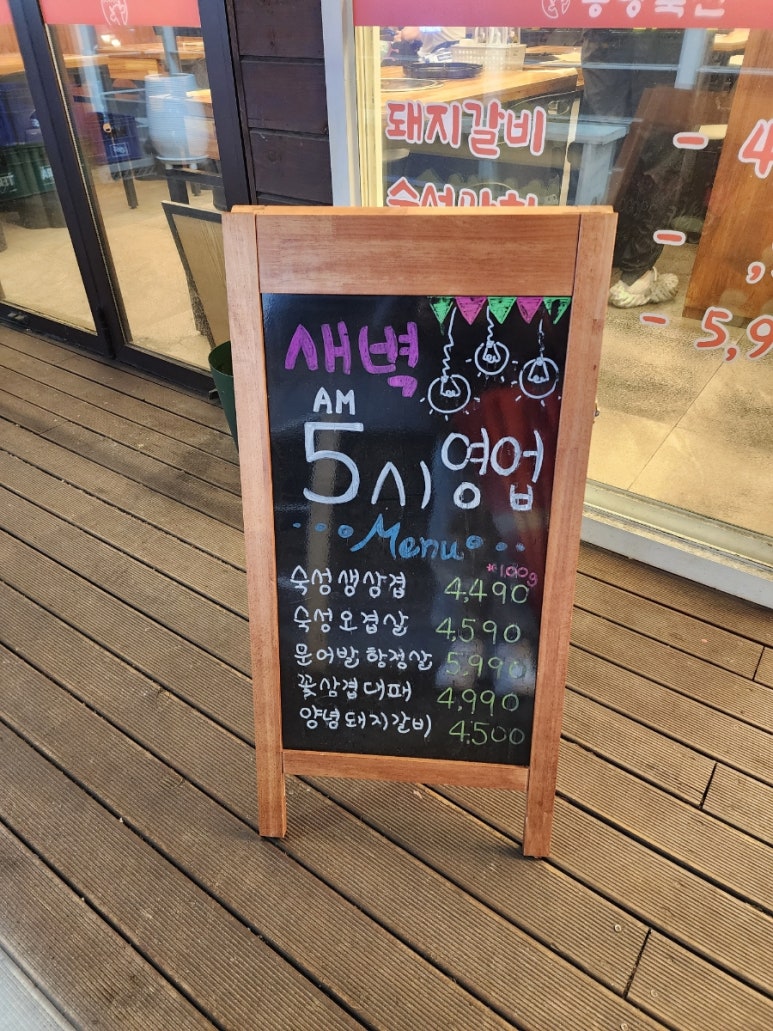 돼지갈비 - 4
-
- 5,9
새벽
AM
5시 영업
Menu
*100g
숙성생삼겹 4,490
숙성오겹살 4,590
문어발항정살 5,990
꽃삼겹대패 4,990
양념돼지갈비 4,500